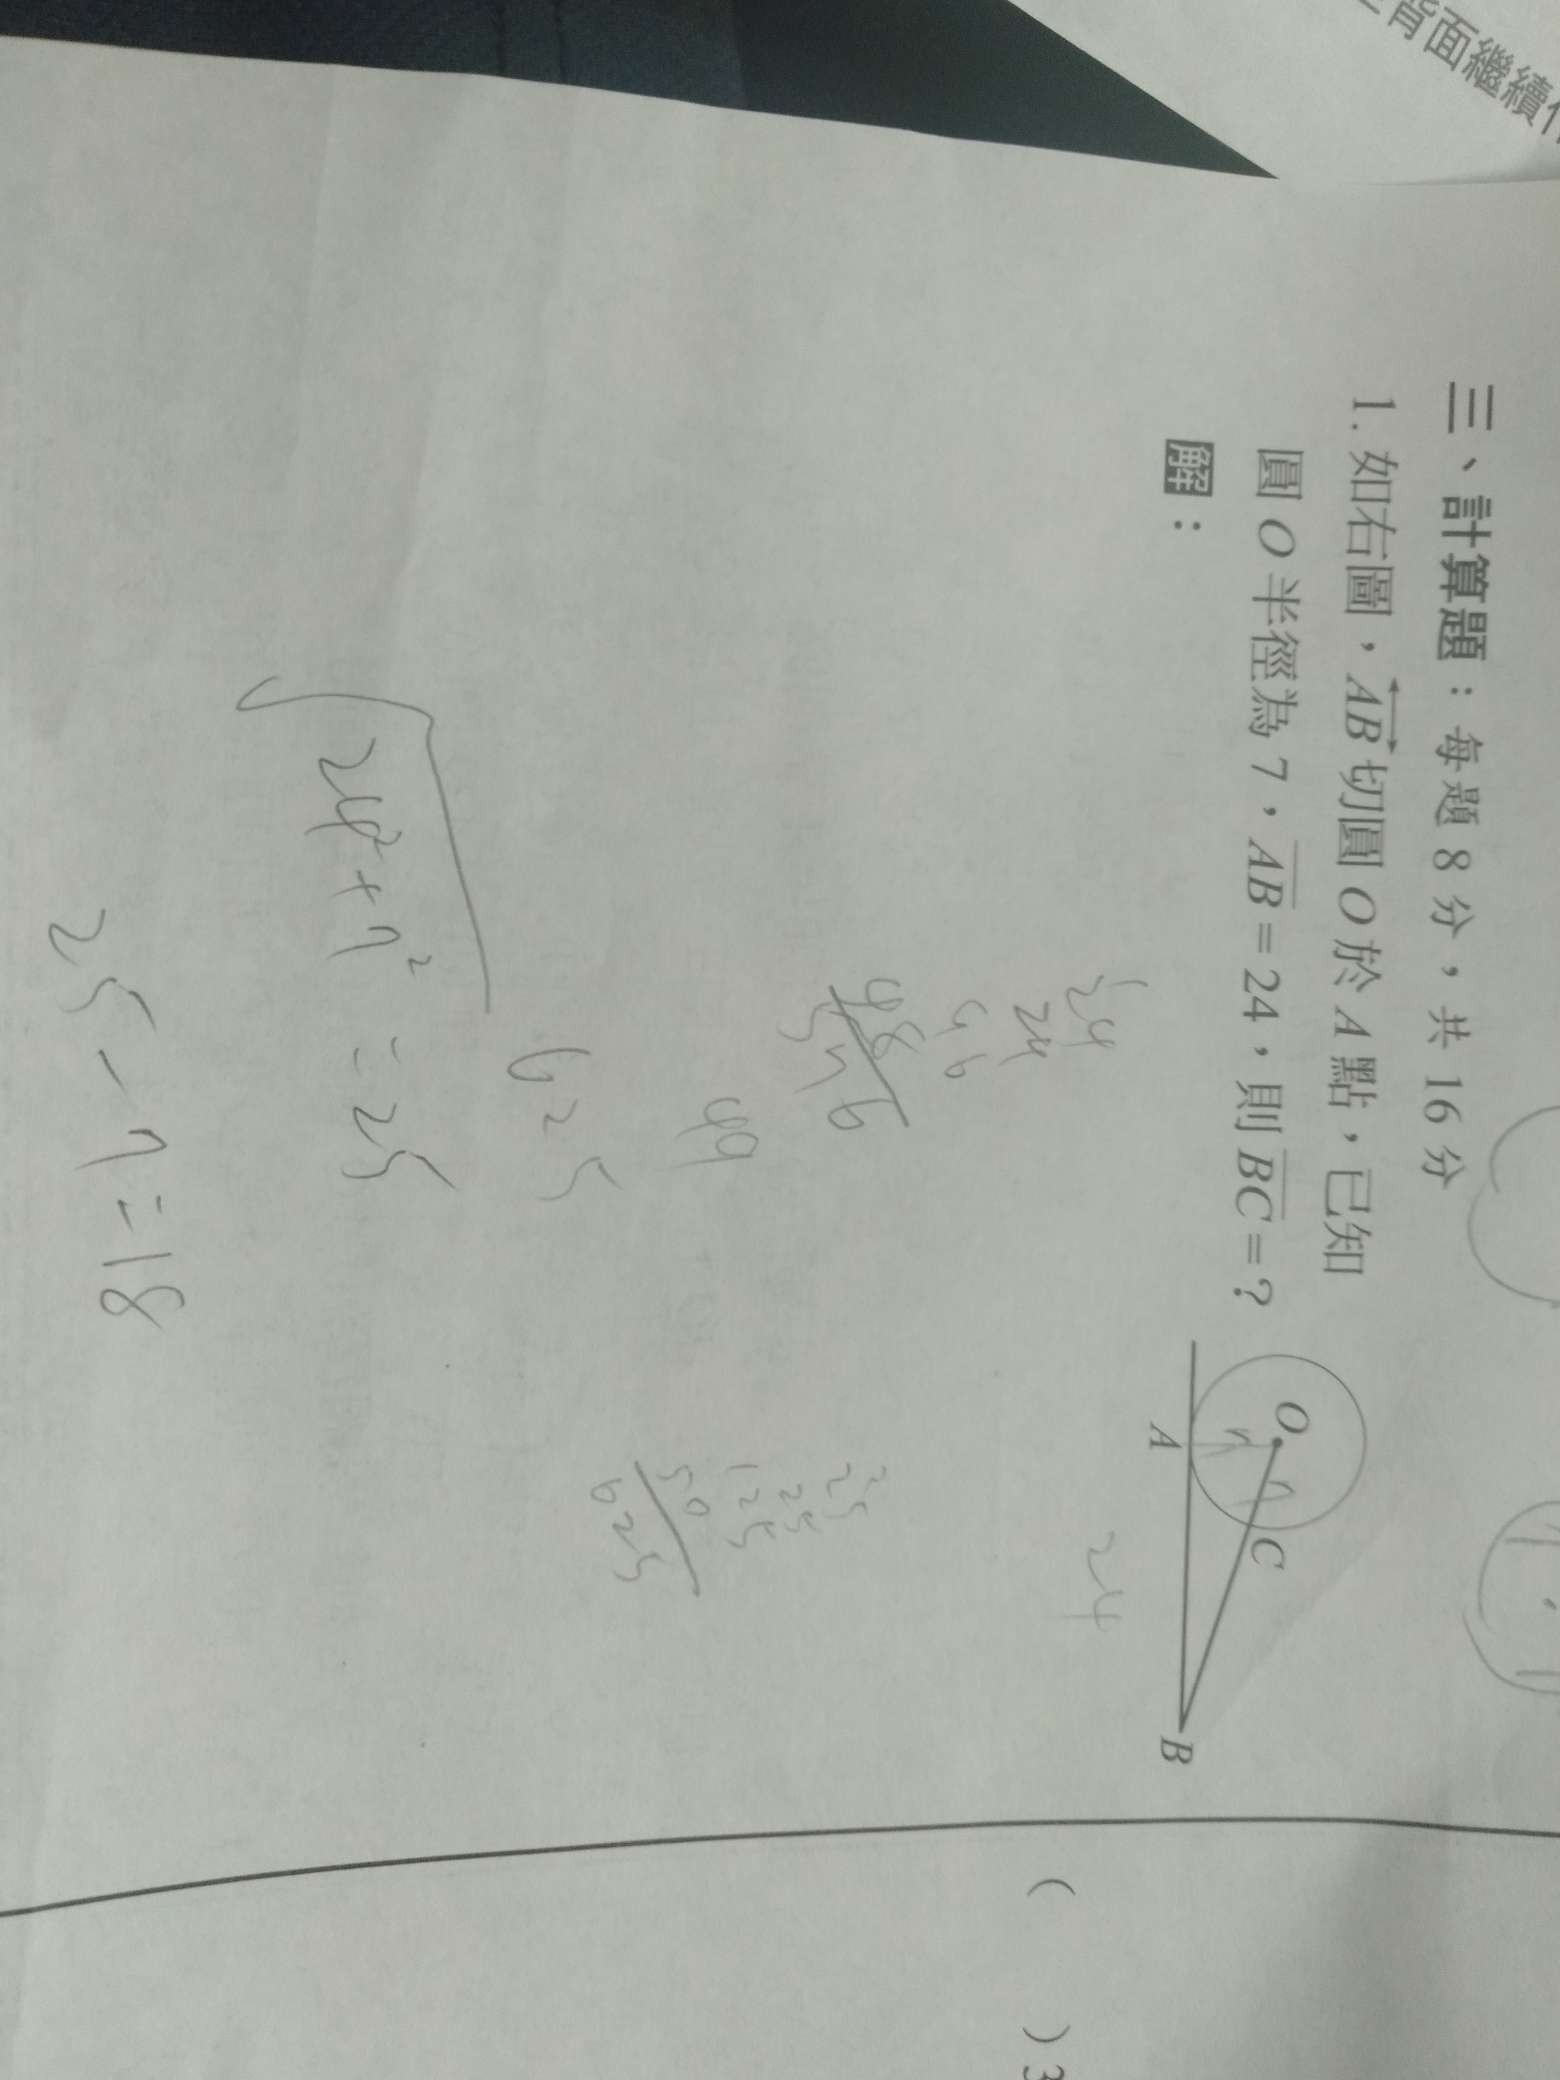 背面繼續
三、計算題：每題 8 分，共 16 分
1. 如右圖，AB 切圓 O 於 A 點，已知
圓 O 半徑為 7，AB = 24，則 BC = ?
解：
O
C
A
B
7
7
24
24
24
96
48
576
49
625
25
25
125
50
625
√24²+7² = 25
25 - 7 = 18
( ) 3